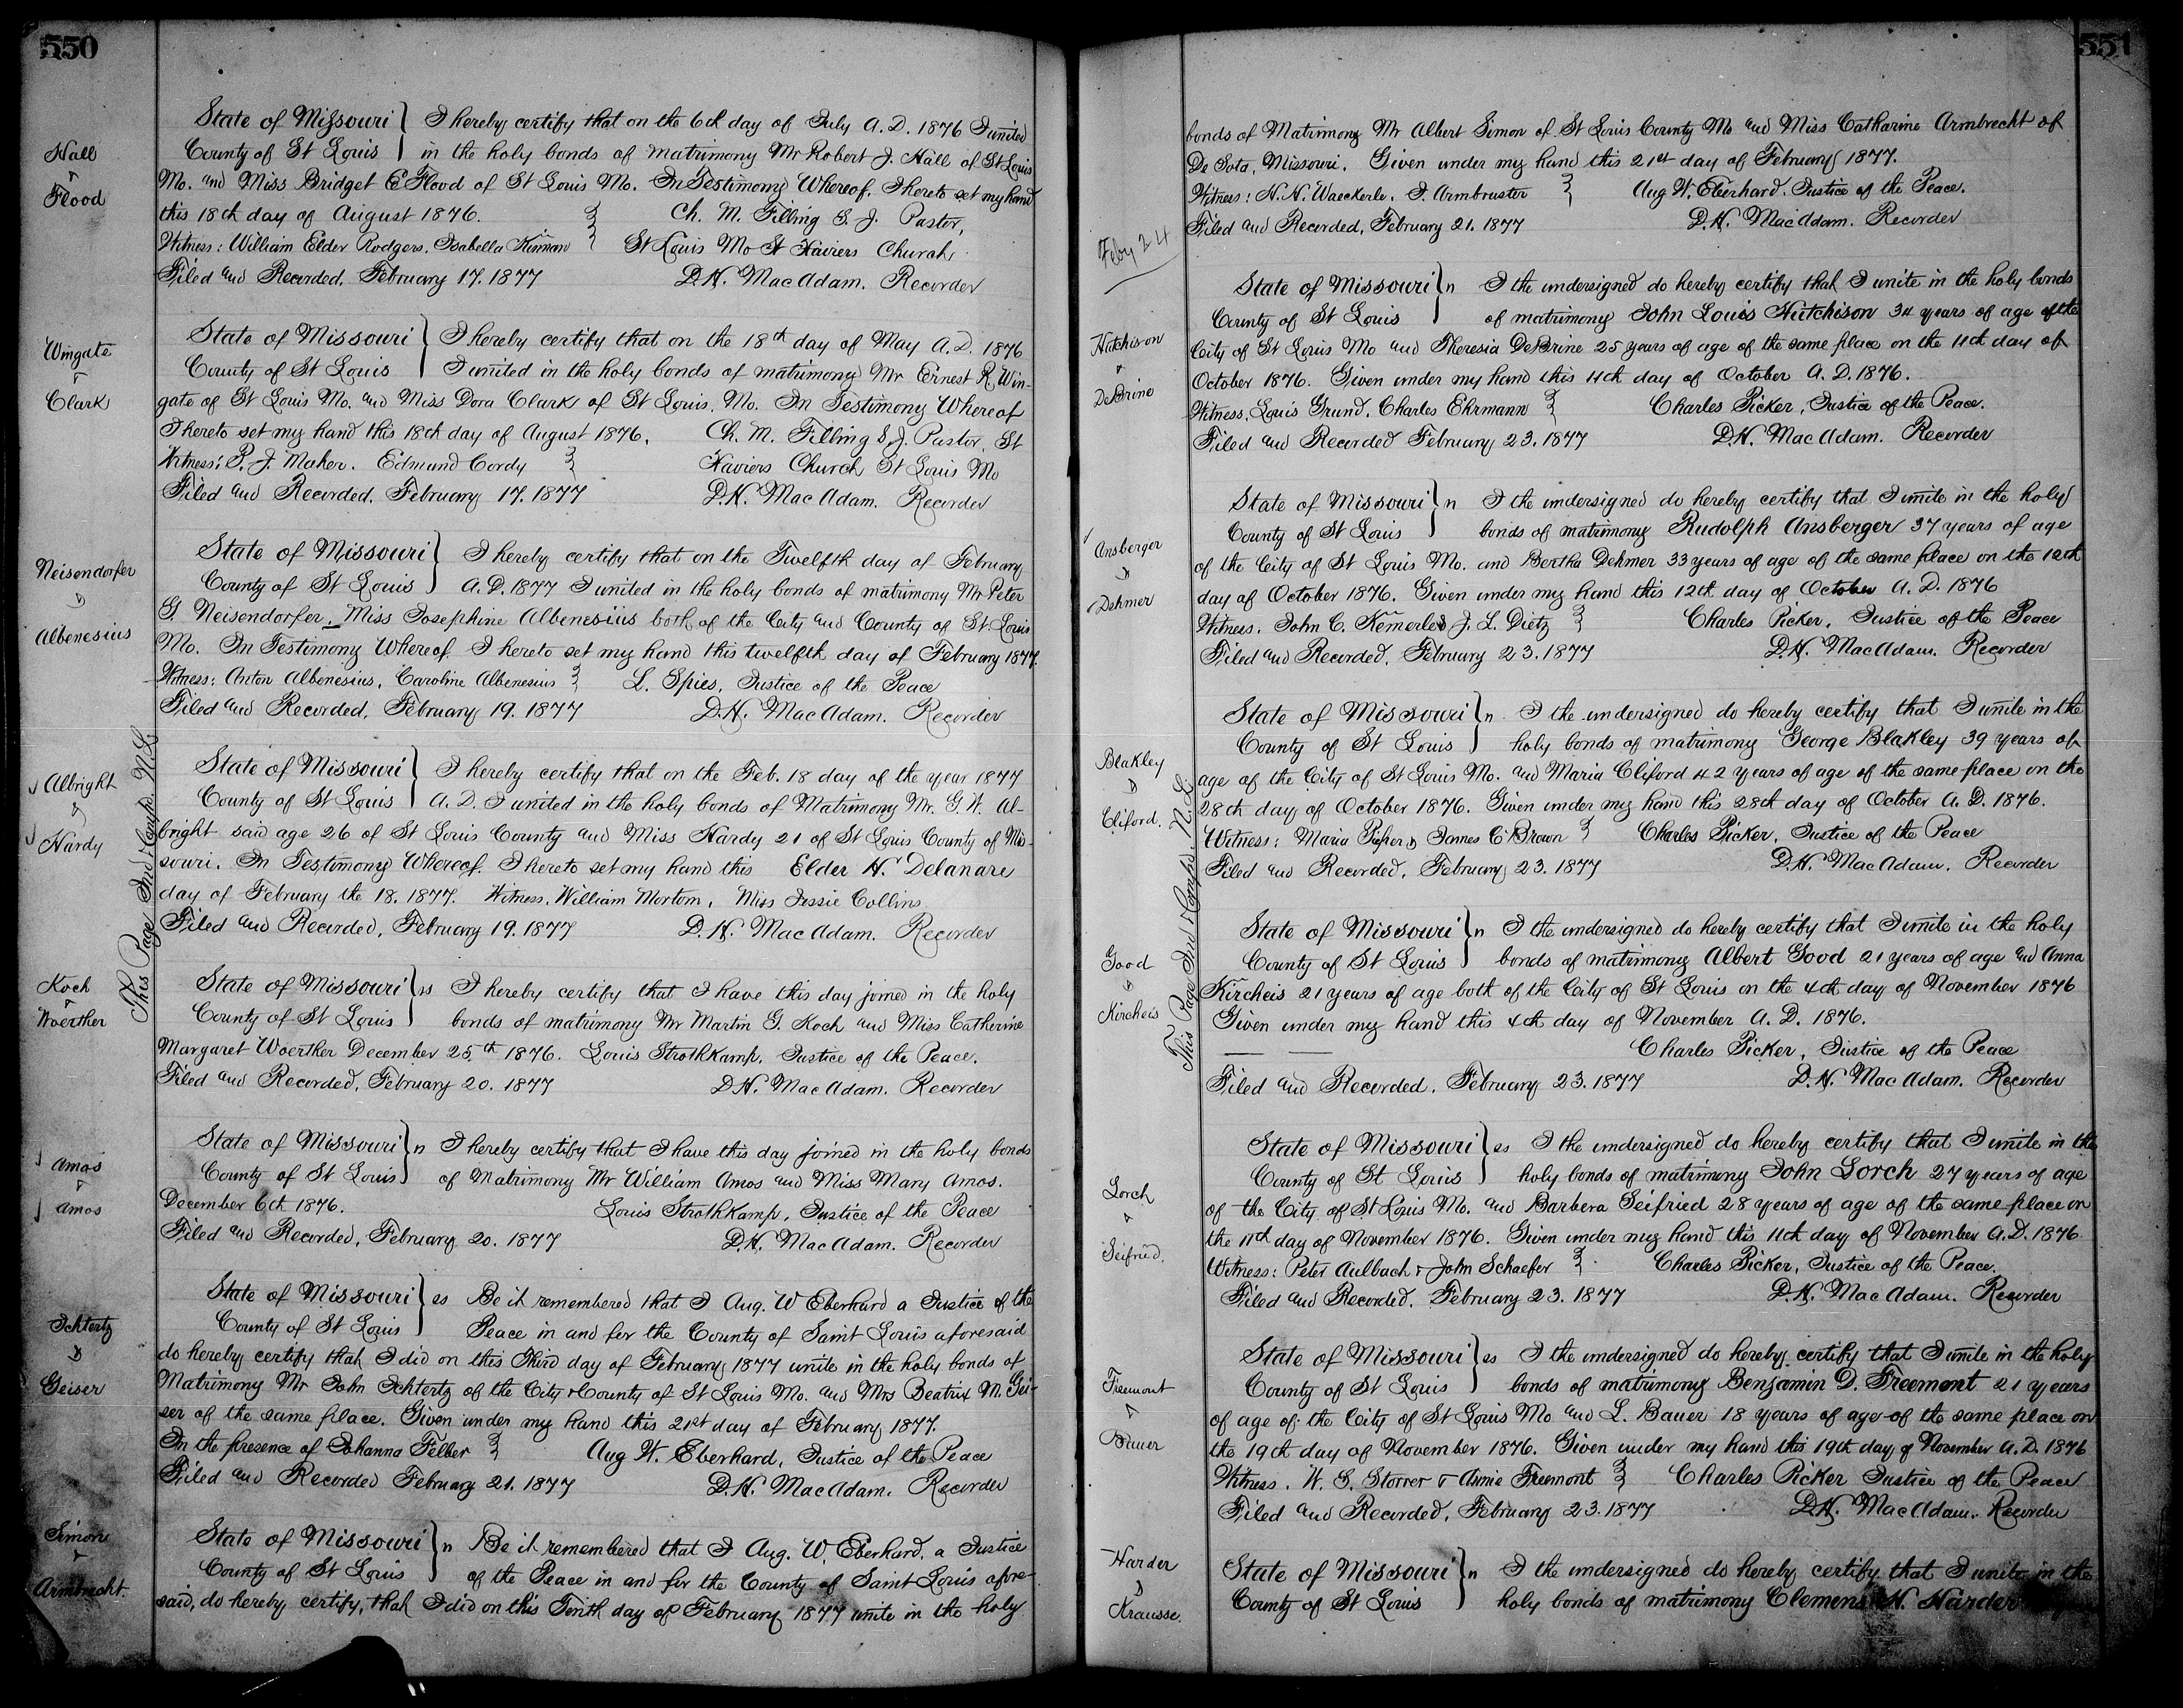 550
Hall
&
Flood
State of Missouri } I hereby certify that on the 6th day of July A. D. 1876 I united
County of St Louis } in the holy bonds of matrimony Mr Robert J. Hall of St Louis
Mo. and Miss Bridget E Flood of St Louis Mo. In Testimony Whereof, I hereto set my hand
this 18th day of August 1876. } Ch. M. Filling S. J. Pastor,
Witness: William Elder Rodgers. Isabella } St Louis Mo St Xaviers Church
Filed and Recorded. February 17. 1877 D. H. MacAdam. Recorder
Wingate
&
Clark
State of Missouri } I hereby certify that on the 18th day of May A. D. 1876
County of St Louis } I united in the holy bonds of matrimony Mr Ernest R. Win-
gate of St Louis Mo. and Miss Dora Clark of St Louis. Mo. In Testimony Whereof
I hereto set my hand this 18th day of August 1876. Ch. M. Filling S. J. Pastor, St
Witness: P. J. Maher. Edmund Cordy } Xaviers Church St Louis Mo
Filed and Recorded. February 17. 1877 D. H. MacAdam. Recorder
Neisendorfer
&
Albenesius
State of Missouri } I hereby certify that on the Twelfth day of February
County of St Louis } A. D. 1877 I united in the holy bonds of matrimony Mr Peter
G. Neisendorfer, Miss Josephine Albenesius both of the City and County of St Louis
Mo. In Testimony Whereof I hereto set my hand this twelfth day of February 1877.
Witness: Anton Albenesius. Caroline Albenesius } L. Spies, Justice of the Peace
Filed and Recorded, February 19. 1877 D. H. MacAdam. Recorder
Albright
&
Hardy
State of Missouri } I hereby certify that on the Feb. 18 day of the year 1877
County of St Louis } A. D. I united in the holy bonds of Matrimony Mr. G. W. Al-
bright said age 26 of St Louis County and Miss Hardy 21 of St Louis County of Mis-
souri. In Testimony Whereof. I hereto set my hand this Elder H. Delanare
day of February the 18. 1877. Witness, William Mortom, Miss Jessie Collins
Filed and Recorded, February 19. 1877 D. H. MacAdam. Recorder
This Page Ind & Comp. N.L.
Koch
&
Woerther
State of Missouri } ss I hereby certify that I have this day joined in the holy
County of St Louis } bonds of matrimony Mr Martin G. Koch and Miss Catherine
Margaret Woerther December 25th 1876. Louis Strothkamp, Justice of the Peace.
Filed and Recorded, February 20. 1877 D. H. MacAdam. Recorder
Amos
&
Amos
State of Missouri } ss I hereby certify that I have this day joined in the holy bonds
County of St Louis } of Matrimony Mr William Amos and Miss Mary Amos.
December 6th 1876. Louis Strothkamp, Justice of the Peace
Filed and Recorded, February 20. 1877 D. H. MacAdam. Recorder
Ichtertz
&
Geiser
State of Missouri } ss Be it remembered that I Aug. W Eberhard a Justice of the
County of St Louis } Peace in and for the County of Saint Louis aforesaid
do hereby certify that I did on this Third day of February 1877 unite in the holy bonds of
Matrimony Mr John Ichtertz of the City & County of St Louis Mo. and Mrs Beatrix M. Gei-
ser of the same place. Given under my hand this 21st day of February 1877.
In the presence of Johanna Felber } Aug W. Eberhard, Justice of the Peace
Filed and Recorded February 21. 1877 D. H. MacAdam. Recorder
Simon
&
Armbrecht.
State of Missouri } ss Be it remembered that I Aug. W. Eberhard. a Justice
County of St Louis } of the Peace in and for the County of Saint Louis afore-
said, do hereby certify, that I did on this Tenth day of February 1877 unite in the holy
551
bonds of Matrimony Mr Albert Simon of St Louis County Mo and Miss Catharine Armbrecht of
De Soto, Missouri. Given under my hand this 21st day of February 1877.
Witness: H. H. Waeckerle. J. Armbruster } Aug W. Eberhard. Justice of the Peace.
Filed and Recorded, February 21. 1877 D. H. MacAdam. Recorder
Feby 24
Hutchison
&
DeBrine
State of Missouri } ss I the undersigned do hereby certify that I unite in the holy bonds
County of St Louis } of matrimony John Louis Hutchison 34 years of age of the
City of St Louis Mo and Theresia DeBrine 25 years of age of the same place on the 11th day of
October 1876. Given under my hand this 11th day of October A. D. 1876.
Witness, Louis Grund, Charles Ehrmann } Charles Picker, Justice of the Peace.
Filed and Recorded February 23. 1877 D. H. MacAdam. Recorder
Ansberger
&
Dehmer
State of Missouri } ss I the undersigned do hereby certify that I unite in the holy
County of St Louis } bonds of matrimony Rudolph Ansberger 37 years of age
of the City of St Louis Mo. and Bertha Dehmer 33 years of age of the same place on the 12th
day of October 1876. Given under my hand this 12th day of October A. D. 1876
Witness. John C. Kemerle & J. L. Dietz } Charles Picker, Justice of the Peace
Filed and Recorded, February 23. 1877 D. H. MacAdam. Recorder
Blakley
&
Cliford.
State of Missouri } ss I the undersigned do hereby certify that I unite in the
County of St Louis } holy bonds of matrimony George Blakley 39 years of
age of the City of St Louis Mo. and Maria Cliford 42 years of age of the same place on the
28th day of October 1876. Given under my hand this 28th day of October A. D. 1876.
Witness: Maria & James C Brown } Charles Picker, Justice of the Peace
Filed and Recorded, February 23. 1877 D. H. MacAdam. Recorder
This Page Ind & Comp N.L.
Good
&
Kircheis
State of Missouri } ss I the undersigned do hereby certify that I unite in the holy
County of St Louis } bonds of matrimony Albert Good 21 years of age and Anna
Kircheis 21 years of age both of the City of St Louis on the 4th day of November 1876
Given under my hand this 4th day of November A. D. 1876.
Charles Picker, Justice of the Peace
Filed and Recorded. February 23. 1877 D. H. MacAdam. Recorder
Lorch
&
Seifried.
State of Missouri } ss I the undersigned do hereby certify that I unite in the
County of St Louis } holy bonds of matrimony John Lorch 27 years of age
of the City of St Louis Mo. and Barbera Seifried 28 years of age of the same place on
the 11th day of November 1876. Given under my hand this 11th day of November A. D. 1876
Witness: Peter Aulbach & John Schaefer } Charles Picker, Justice of the Peace.
Filed and Recorded. February 23. 1877 D. H. MacAdam. Recorder
Freemont
&
Bauer
State of Missouri } ss I the undersigned do hereby certify that I unite in the holy
County of St Louis } bonds of matrimony Benjamin D. Freemont 21 years
of age of the City of St Louis Mo and L. Bauer 18 years of age of the same place on
the 19th day of November 1876. Given under my hand this 19th day of November A. D. 1876
Witness. W. S. Storrer & Annie Freemont } Charles Picker Justice of the Peace
Filed and Recorded, February 23. 1877 D. H. MacAdam. Recorder
Harder
&
Krausse.
State of Missouri } ss I the undersigned do hereby certify that I unite in the
County of St Louis } holy bonds of matrimony Clemens H. Harder